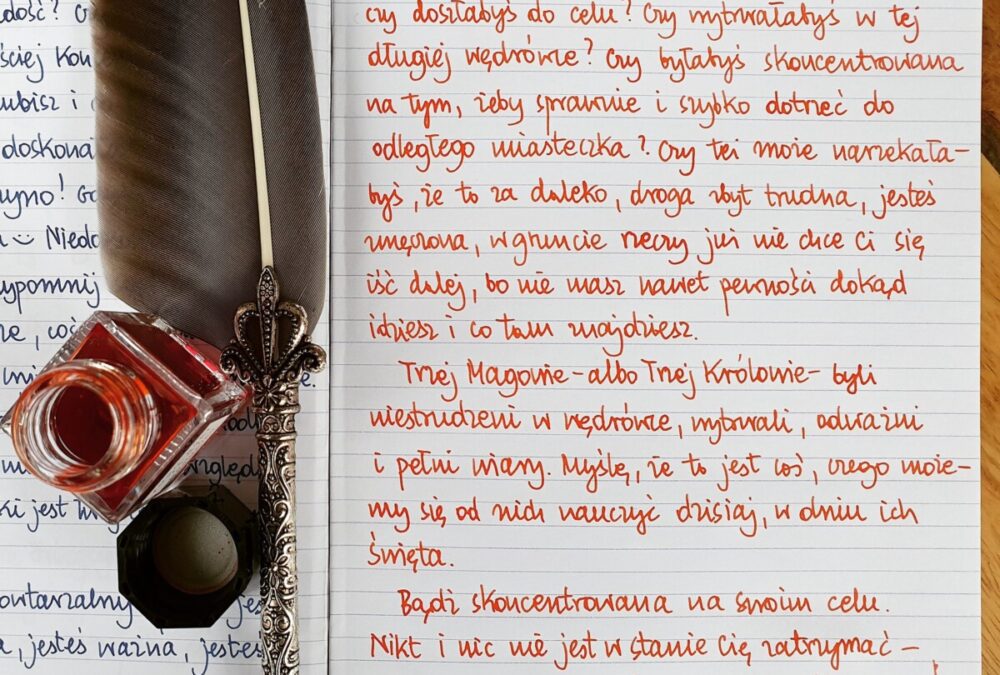 dość?
ściej
ubisz i
doskona
Niedo
ypomnij
re, coś
względ
ki jest
owtarzalny jes
jesteś ważna, jesteś
czy doszłabyś do celu? Czy wytrwałabyś w tej
długiej wędrówce? Czy byłabyś skoncentrowana
na tym, żeby sprawnie i szybko dotrzeć do
odległego miasteczka? Czy też może narzekała-
byś, że to za daleko, droga zbyt trudna, jesteś
zmęczona, w gruncie rzeczy już nie chce Ci się
iść dalej, bo nie masz nawet pewności dokąd
idziesz i co tam znajdziesz.
Trzej Magowie - albo Trzej Królowie - byli
niestrudzeni w wędrówce, wytrwali, odważni
i pełni wiary. Myślę, że to jest coś, czego może-
my się od nich nauczyć dzisiaj, w dniu ich
Święta.
Bądź skoncentrowana na swoim celu.
Nikt i nic nie jest w stanie Cię zatrzymać -